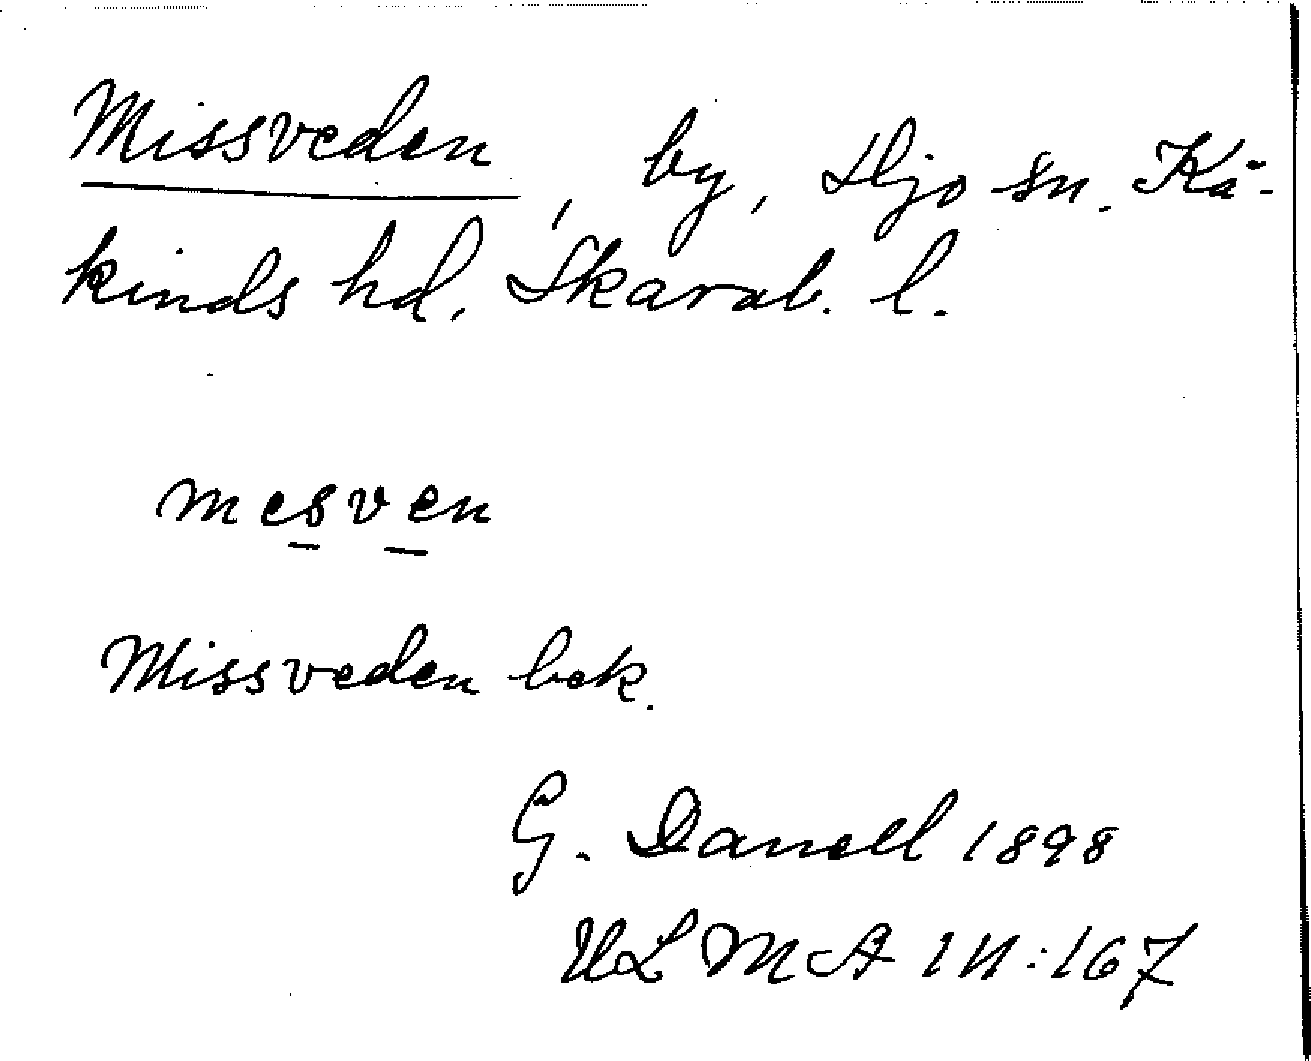 Missveden, by, Hjo sn. Kå-
kinds hd, Skarab. l.
mesven
Missveden bek.
G. Danell 1898
ULMA 111:167